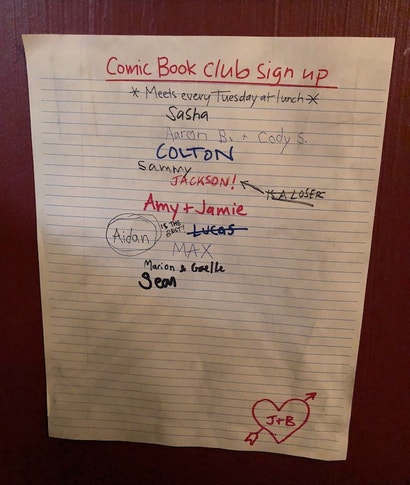 Comic Book Club Sign up
* Meets every Tuesday at lunch *
Sasha
Aaron B. + Cody S.
COLTON
Sammy
JACKSON!
IS A LOSER
Amy + Jamie
Aidan
IS THE
BEST!
LUCAS
MAX
Marion & Gaelle
Sean
J+B